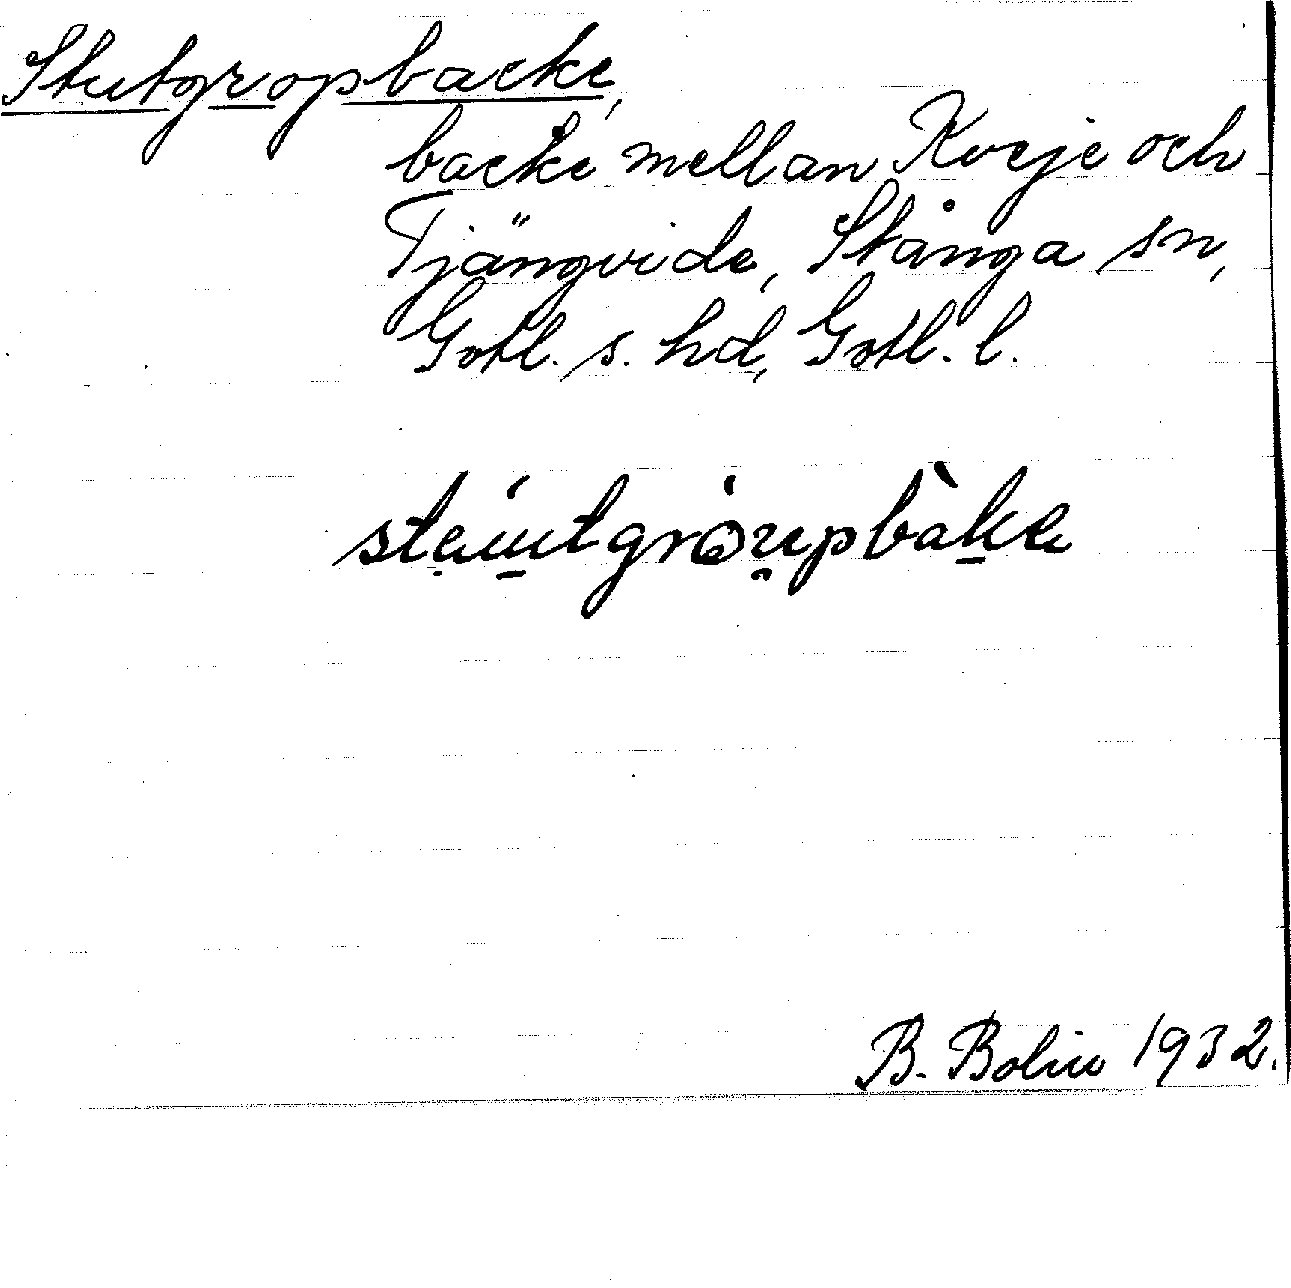 Stutgropbacke,
backe mellan Kveje och
Tjängvide, Stånga sn,
Gotl. s. hd, Gotl. l.
B. Bolin 1932.